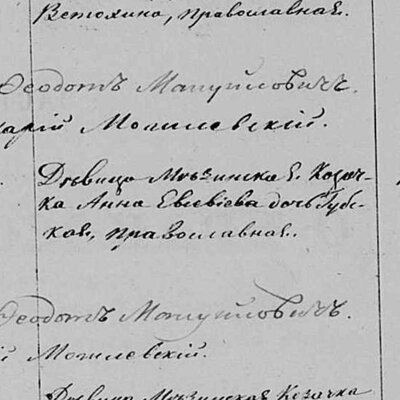 Ветохина, православная.
Ѳеодотъ Мануйловичъ.
арій Могилевскій.
Дѣвица Мѣзинская Козач-
ка Анна Евсевіева дочь Губс-
кая, православная.
Ѳеодотъ Мануйловичъ.
й Могилевскій.
Дѣвица Мѣзинская Козачка